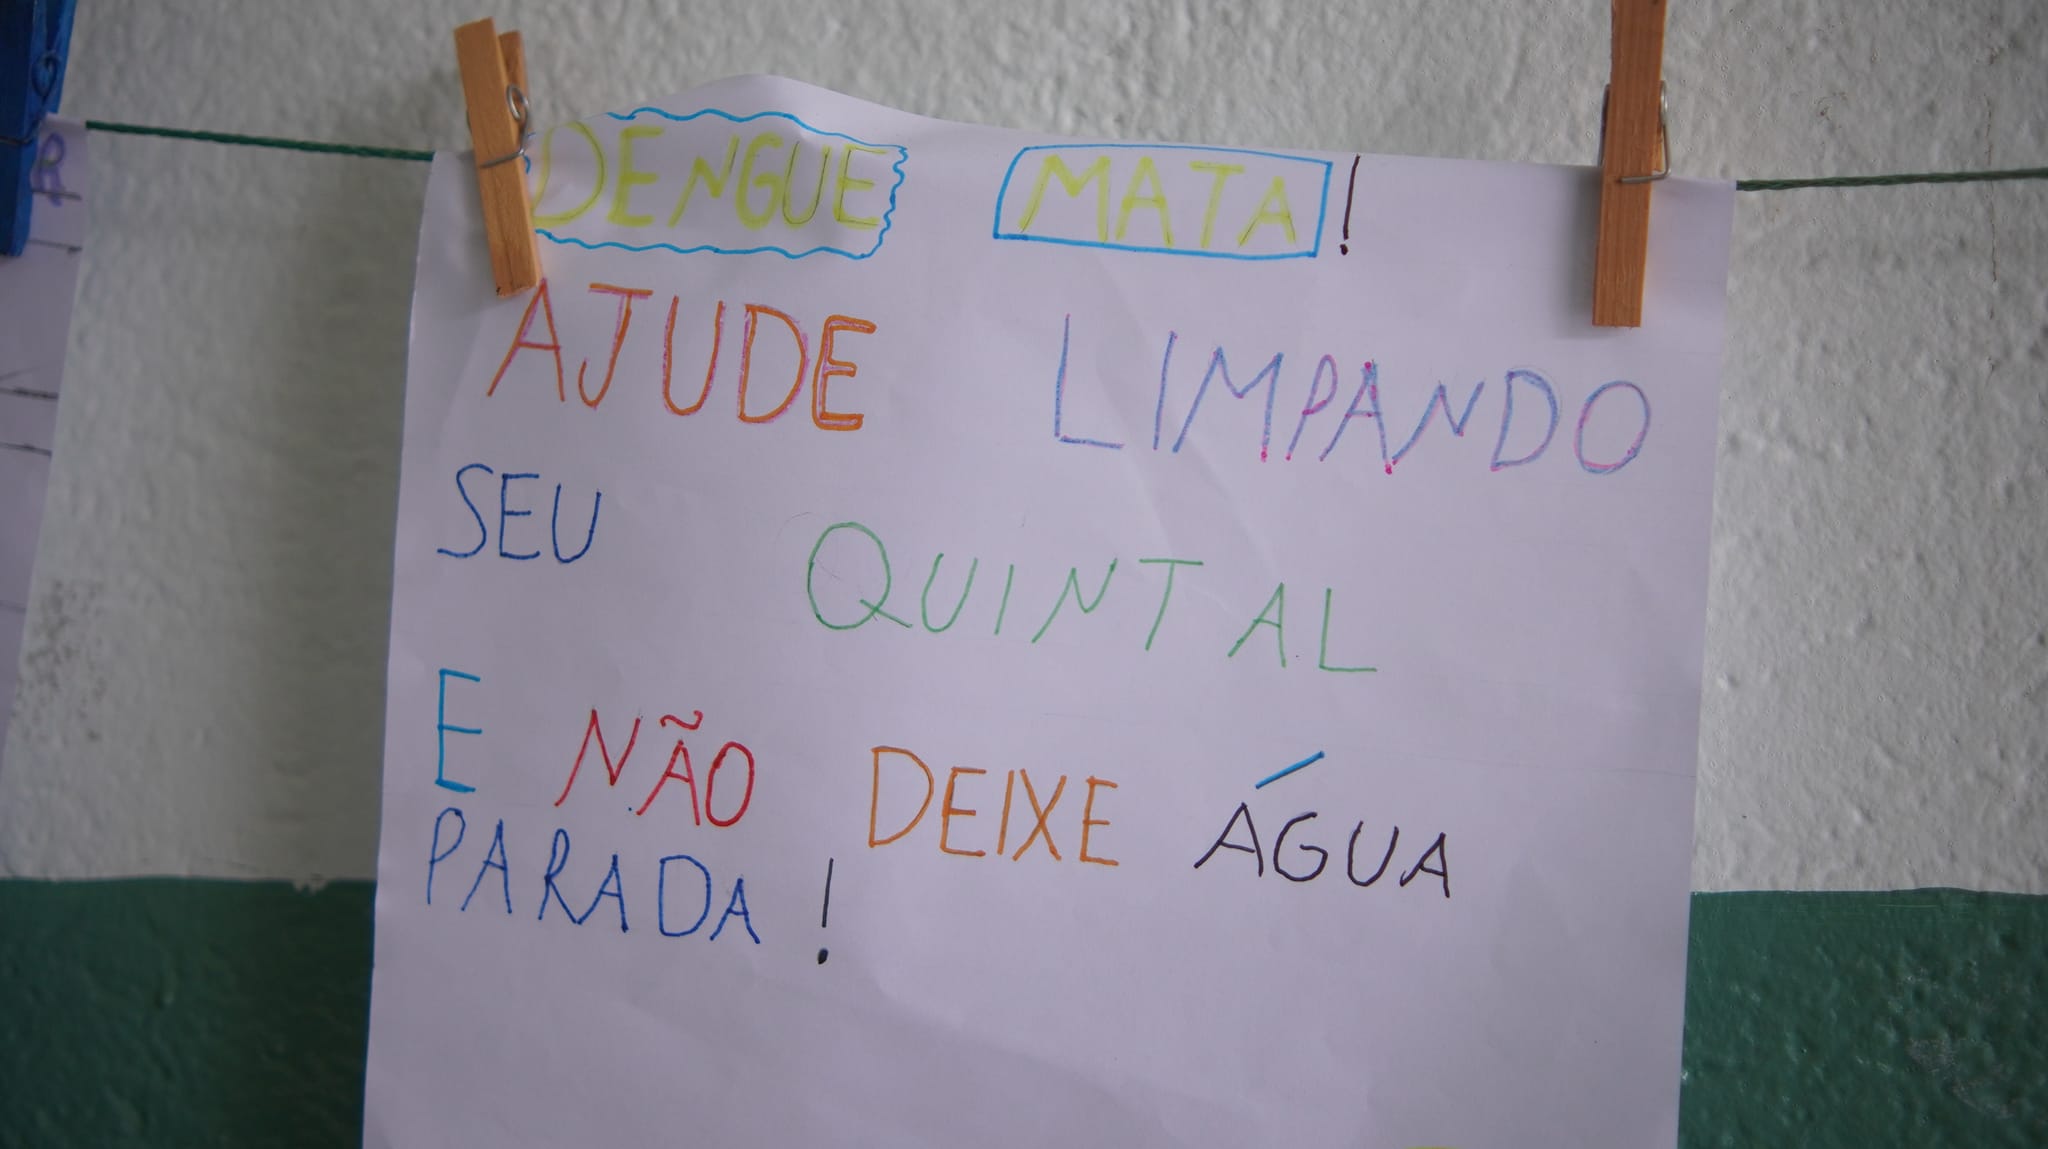 DENGUE MATA!
AJUDE LIMPANDO
SEU QUINTAL
E NÃO DEIXE ÁGUA
PARADA!
R